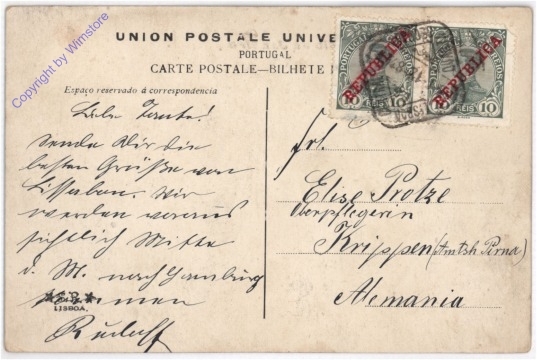 UNION POSTALE UNIVE
PORTUGAL
CARTE POSTALE—BILHETE
Espaço reservado á correspondencia
Copyright by Wimstore
PORTUGAL CORREIOS
REPUBLICA
10 REIS 10
REPUBLICA
REIS 10
Liebe Tante!
Sende Dir die
besten Grüße von
Lissabon. Wir
werden voraus
sichtlich Mitte
d. M. nach Hamburg
kommen
Rudolf
LISBOA.
Frl.
Elise Protze
Oberpflegerin
Krippen (Amtsh Pirna)
Alemania